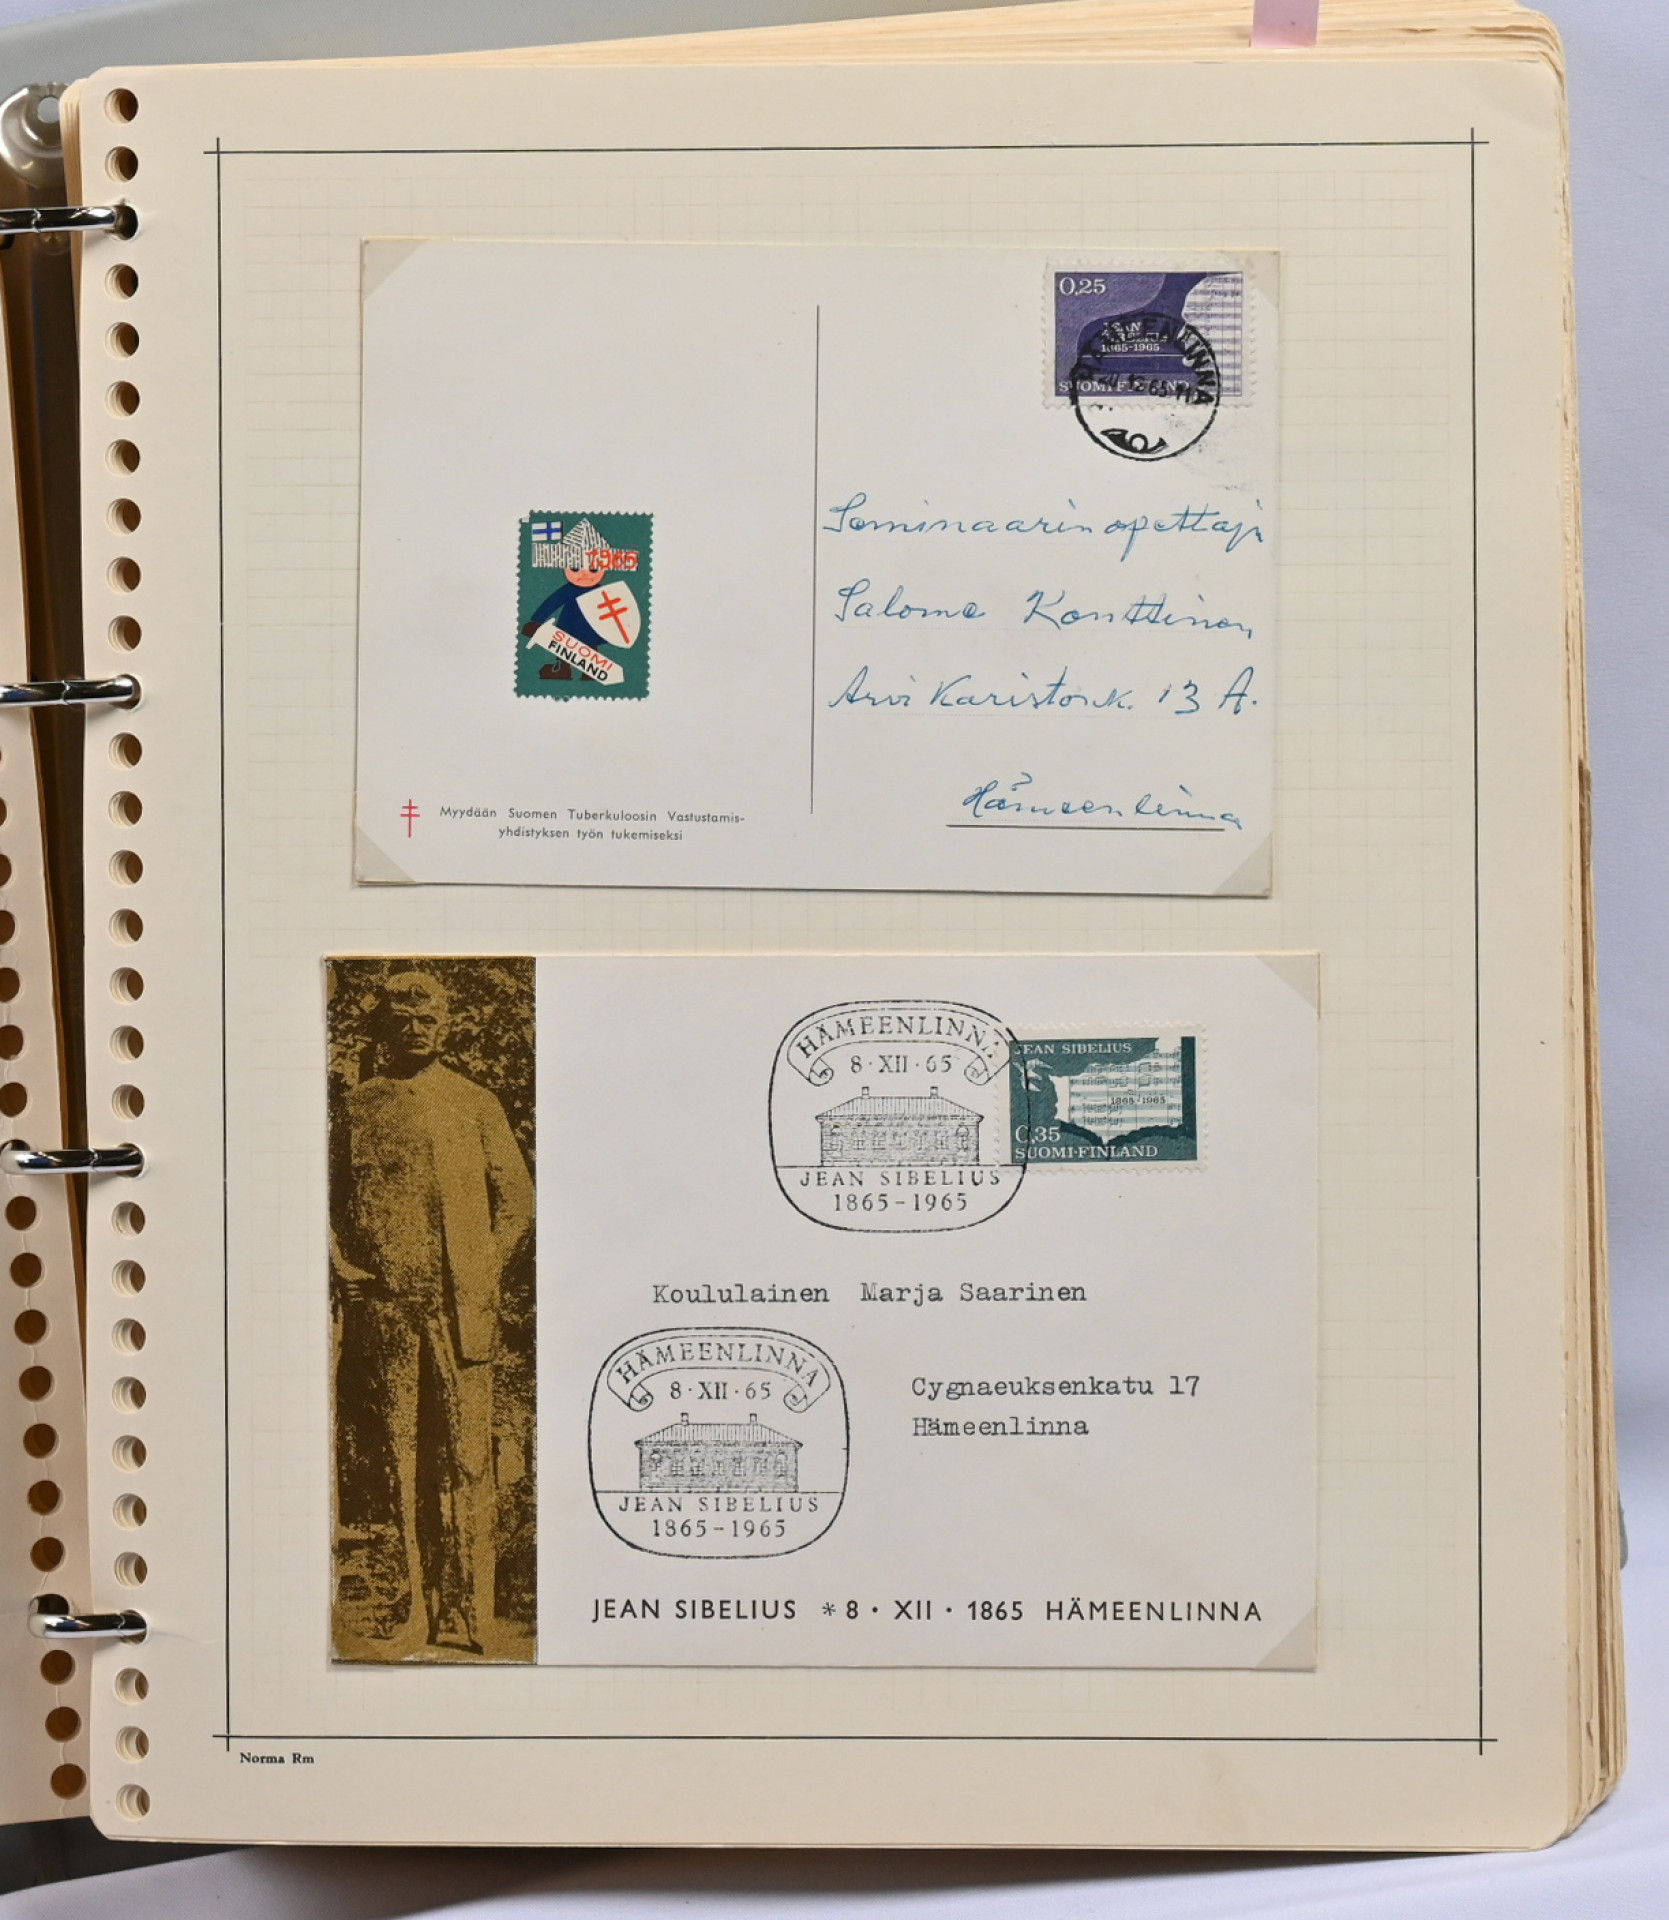 0,25
JEAN
SIBELIUS
1865-1965
SUOMI-FINLAND
HÄMEENLINNA
1965
SUOMI
FINLAND
Seminaarinopettaja
Salome Konttinen
Arvi Karistonk. 13 A.
Hämeenlinna
Myydään Suomen Tuberkuloosin Vastustamis-
yhdistyksen työn tukemiseksi
HÄMEENLINNA
8·XII·65
JEAN SIBELIUS
1865-1965
JEAN SIBELIUS
1865-1965
0,35
SUOMI·FINLAND
Koululainen Marja Saarinen
Cygnaeuksenkatu 17
Hämeenlinna
HÄMEENLINNA
8·XII·65
JEAN SIBELIUS
1865-1965
JEAN SIBELIUS *8·XII·1865 HÄMEENLINNA
Norma Rm